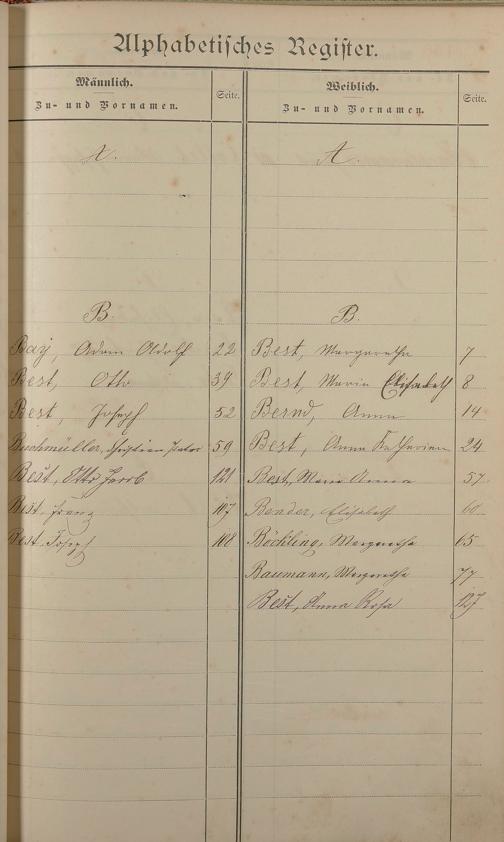 Alphabetisches Register.
Männlich.
Zu- und Vornamen.
Seite.
A.
B.
Bay, Adam Adolf 22
Best, Otto 39
Best, Joseph 52
Buchmüller, Christian Peter 59
Best, Otto Jacob 121
Best, Franz 107
Best Joseph 108
Weiblich.
Zu- und Vornamen.
Seite.
A.
B.
Best, Margaretha 7
Best, Maria Elisabeth 8
Bernd, Anna 14
Best, Anna Katharina 24
Best, Maria Anna 57
Bender, Elisabeth 60
Böckling, Margaretha 65
Baumann, Margaretha 77
Best, Anna Rosa 127